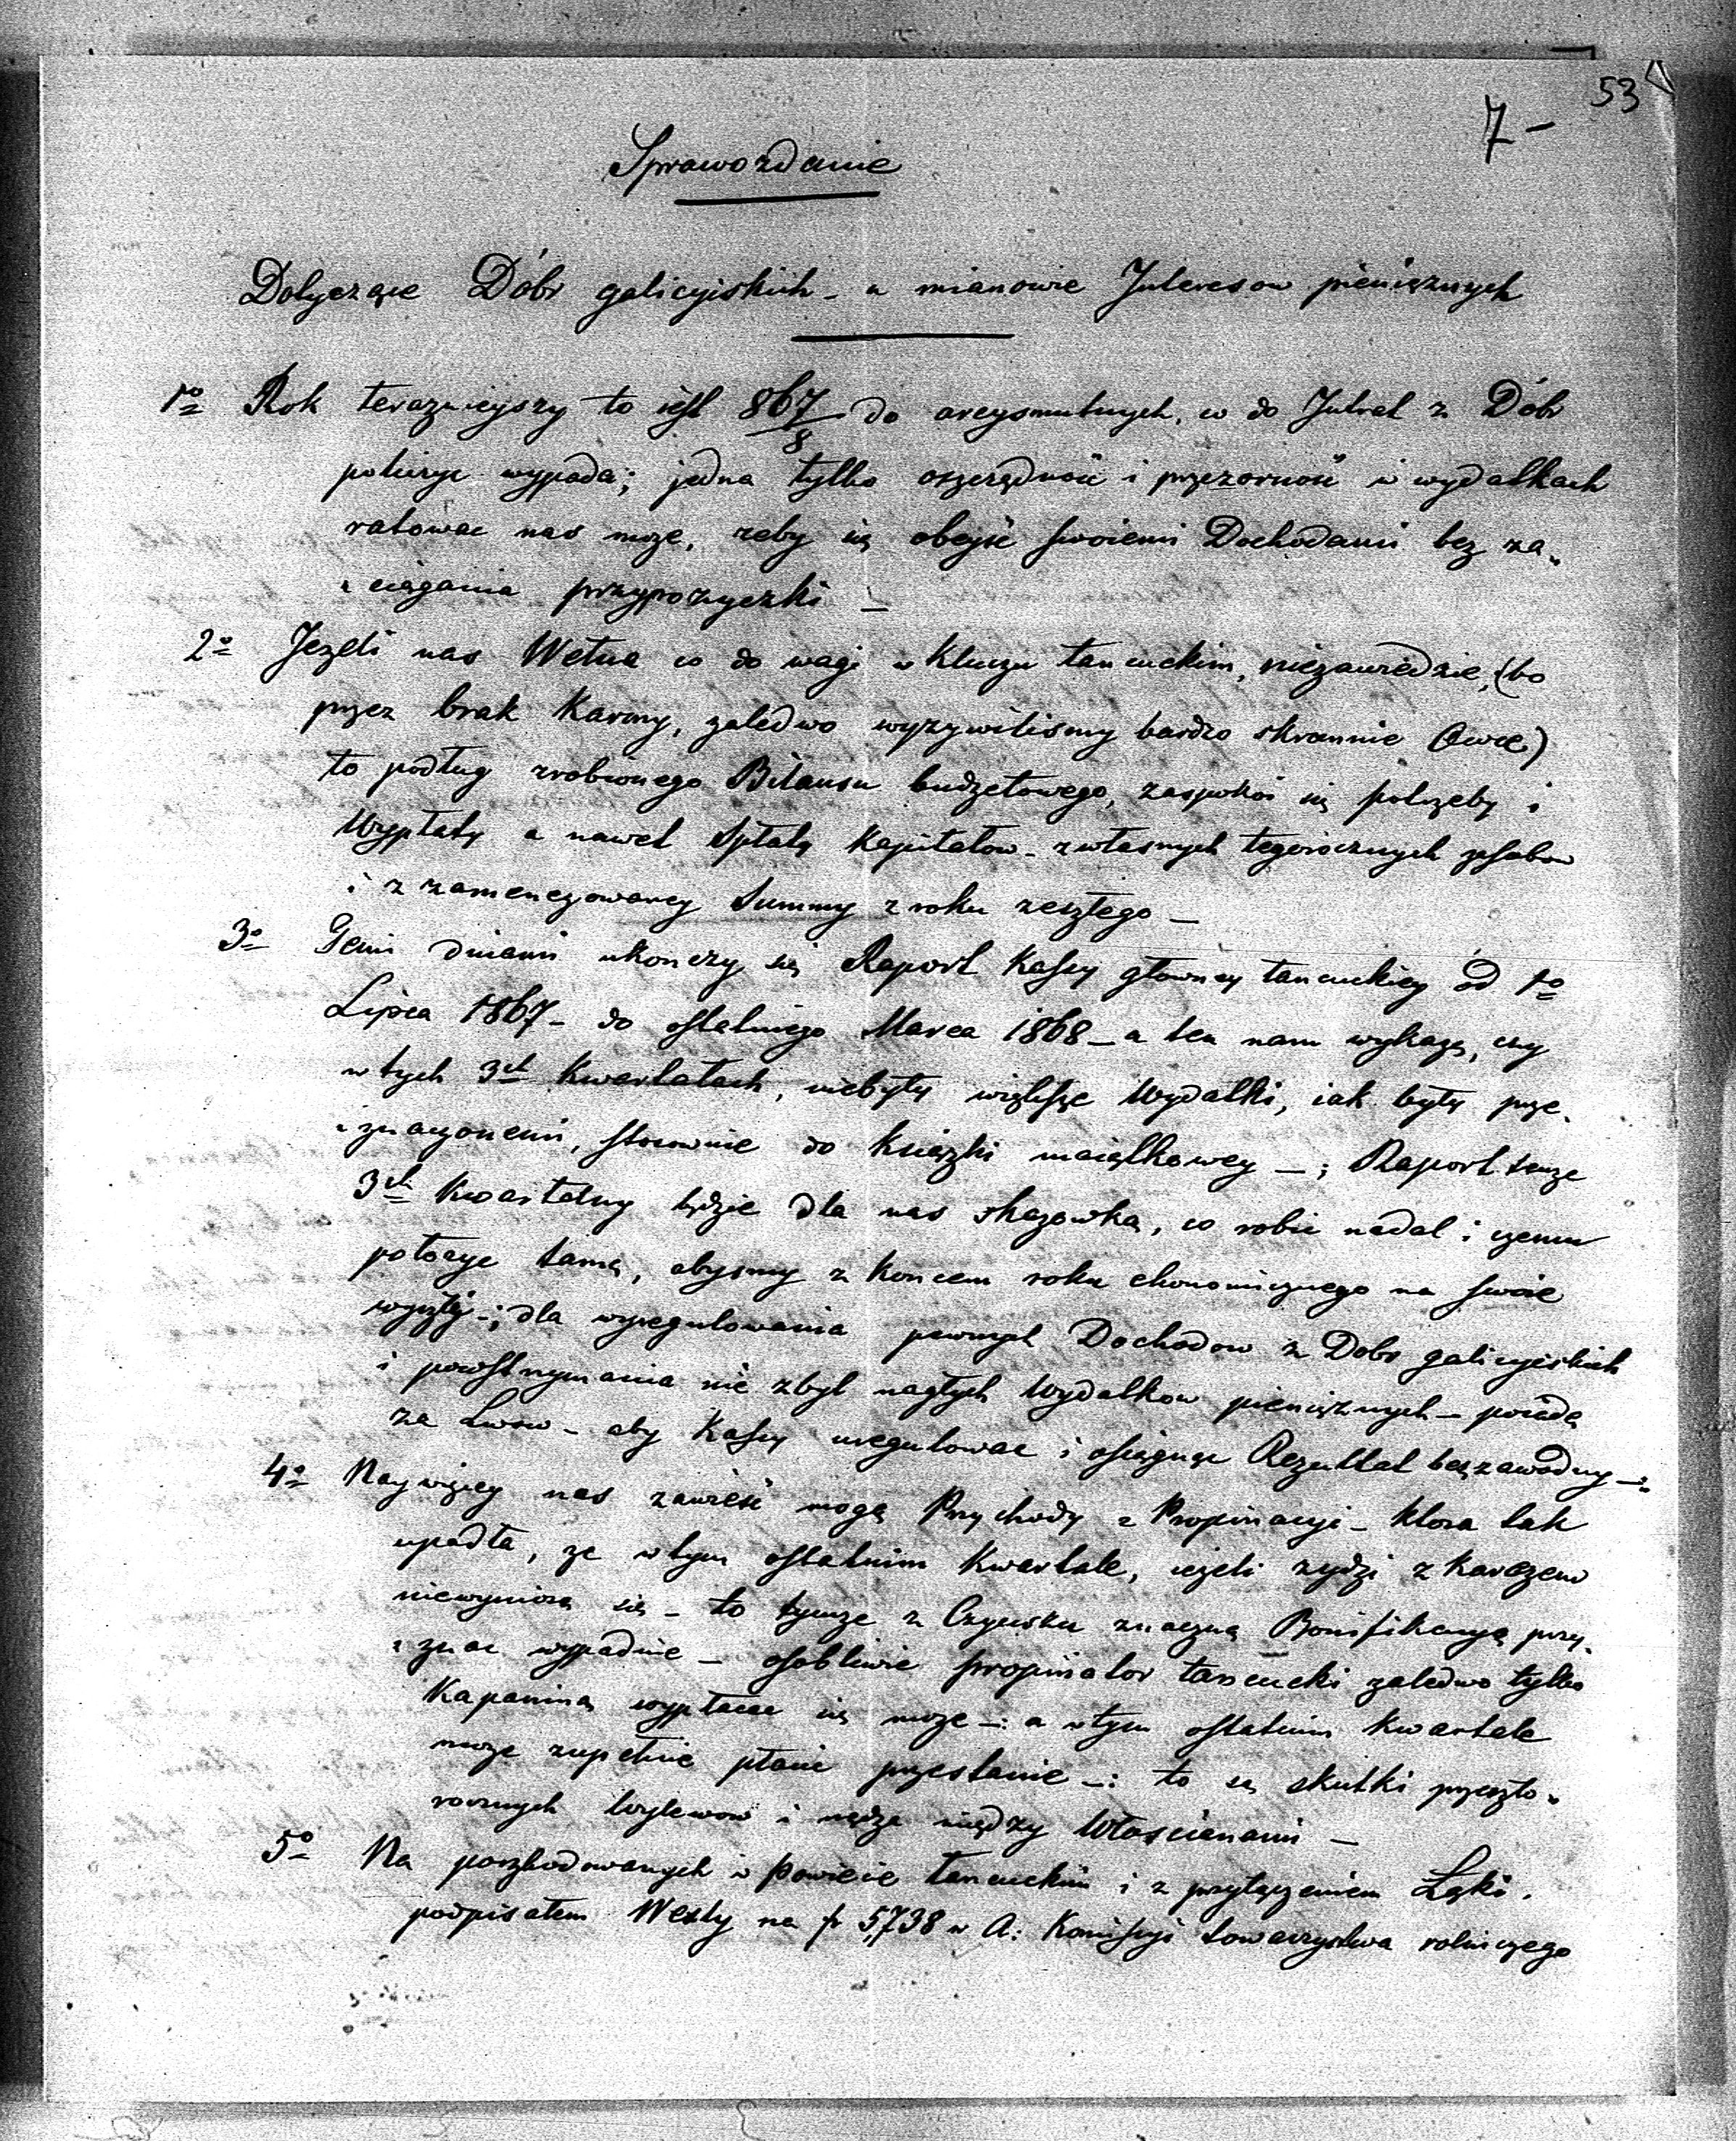 53
7 –
Sprawozdanie
Dotyczące Dóbr galicyiskich – a mianowie Interesow pieniężnych
1o Rok terazniejszy to iest 867/8 do arcysmutnych, co do Intrat z Dóbr
policzyc wypada; jedna tylko oszczędność i przezorność w wydatkach
ratowac nas może, żeby się obejść swoiemi Dochodami bez za„
„ciągania przypozyczki –
2o Jeżeli nas Wełna co do wagi w Kluczu łancuckim, niezawiedzie, (bo
przez brak Karmy, zaledwo wyzywiliśmy bardzo skromnie Owce)
to podług zrobionego Bilansu budzetowego, zaspokoi się potrzeby i
Wypłaty a nawet Spłatę Kapitałow – z własnych tegorocznych zasobow
i z zamenezowaney Summy z roku zeszłego –
3o Temi dniami ukonczy się Raport Kassy głowney łancuckiey od 1o
Lipca 1867 – do ostatniego Marca 1868 – a ten nam wykaże, czy
w tych 3ch Kwartałach, niebyły większe Wydatki, iak były prze„
„znaczonemi, stosownie do Ksiązki maiątkowey –; Raport tenze
3ch Kwartalny będzie dla nas skazowką, co robic nadal i czemu
połozyc tamę, abysmy z Koncem roku ekonomicznego na swoie
wyszli –; dla wyregulowania pewnych Dochodow z Dobr galicyiskich
i powstrzymania nie zbyt nagłych Wydatkow pieniężnych – poiadę
za Lwow – aby Kassy uregulowac i osiągnąc Rezultat bezzawodny –:
4o Naywięcey nas zawieść mogą Przychody z Propinacyi – Ktora tak
upadła, ze w tym ostatnim Kwartale, iezeli zydzi z Karczem
niewyniosą się – to tymze z Czynszu znaczną Bonifikacyą przy„
„znac wypadnie – osobliwie propinator łancucki zaledwo tylko
Kapaniną wypłacac się moze –: a w tym ostatnim Kwartale
moze zupełnie płacic przestanie –: to są skutki przeszło„
rocznych wylewow i nędza między Włoscianami –
5o Na poszkodowanych w Powiecie łancuckim i z przyłączeniem Łąki,
podpisałem Wexly na fr 5,738 w A: Komissyi towarzystwa rolniczego